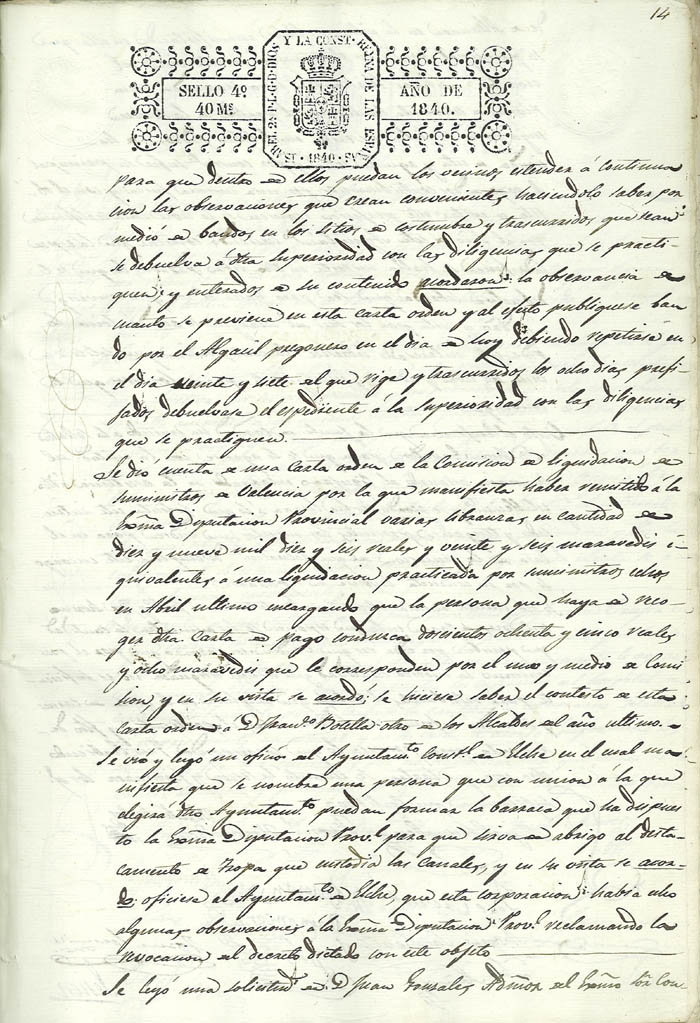 14
YSABEL 2ª P.L.G.D.DIOS Y LA CONST. REINA DE LAS ESPAÑAS. 1840.
SELLO 4º
40 Ms
AÑO DE
1840.
para que dentro de ellos puedan los vecinos estender á continua
cion las observaciones que crean convenientes haciendolo saber por
medio de bandos en los sitios de costumbre y trascurridos que sean
se debuelva á dha Superioridad con las diligencias que se practi
quen; y enterados de su contenido acordaron: la observancia de
cuanto se previene en esta carta orden y al efecto publiquese ban
do por el Alguacil pregonero en el dia de hoy debiendo repetirse en
el dia veinte y siete del que rige y trascurridos los ocho dias prefi
jados debuelvase el espediente á la Superioridad con las diligencias
que se practiquen.
Se dió cuenta de una Carta orden de la Comision de liquidacion de
suministros de Valencia por la que manifiesta haber remitido á la
Exma Diputacion Provincial varias libranzas en cantidad de
diez y nueve mil diez y seis reales y veinte y seis maravedis e
quivalentes á una liquidacion practicada por suministros echos
en Abril ultimo encargando que la persona que haya de reco
ger dha. Carta de pago conduzca doscientos ochenta y cinco reales
y ocho maravedis que le corresponden por el uno y medio de Comi
sion, y en su vista se acordó; se hiciese saber el contesto de esta
Carta orden á D. Franco Botella otro de los Alcaldes del año ultimo.
Se vió y leyó un oficio del Ayuntamto Constl de Elche en el cual ma
nifiesta que se nombre una persona que con union á la que
elegirá dho Ayuntamto puedan formar la barraca que ha dispues
to la Exma Diputacion Provl para que sirva de abrigo al desta
camento de tropa que custodia los Carrales, y en su vista se acor
dó: oficiese al Ayuntamto de Elche, que esta corporacion habia echo
algunas observaciones á la Exma Diputacion Provl reclamando la
revocacion del decreto dictado con este objeto
Se leyó una solicitud de D. Juan Gonzales Admor del Exmo Sor Con